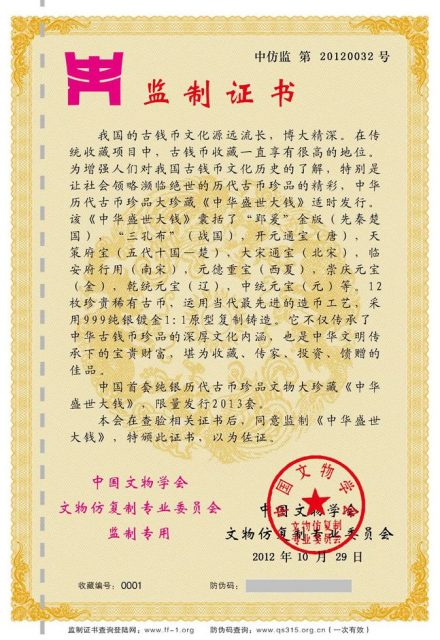 中仿监 第 20120032 号
监制证书
我国的古钱币文化源远流长，博大精深。在传
统收藏项目中，古钱币收藏一直享有很高的地位。
为增强人们对我国古钱币文化历史的了解，特别是
让社会领略濒临绝世的历代古币珍品的精彩，中华
历代古币珍品大珍藏《中华盛世大钱》适时发行。
该《中华盛世大钱》囊括了“郢爰”金版（先秦楚
国），“三孔布”（战国），开元通宝（唐），天
策府宝（五代十国—楚），大宋通宝（北宋），临
安府行用（南宋），元德重宝（西夏），崇庆元宝
（金），乾统元宝（辽），中统元宝（元）等。12
枚珍贵稀有古币，运用当代最先进的造币工艺，采
用999纯银镀金1:1原型复制铸造。它不仅传承了
中华古钱币珍品的深厚文化内涵，也是中华文明传
承下的宝贵财富，堪为收藏、传家、投资、馈赠的
佳品。
中国首套纯银历代古币珍品文物大珍藏《中华
盛世大钱》，限量发行2013套。
本会在查验相关证书后，同意监制《中华盛世
大钱》，特颁此证书，以为佐证。
中国文物学会
文物仿复制专业委员会
监制专用
中国文物学会
文物仿复制
专业委员会
中国文物学会
文物仿复制专业委员会
2012 年 10 月 29 日
收藏编号：0001
防伪码：
监制证书查询登陆网：www.ff-1.org
防伪码查询：www.qs315.org.cn（一次有效）